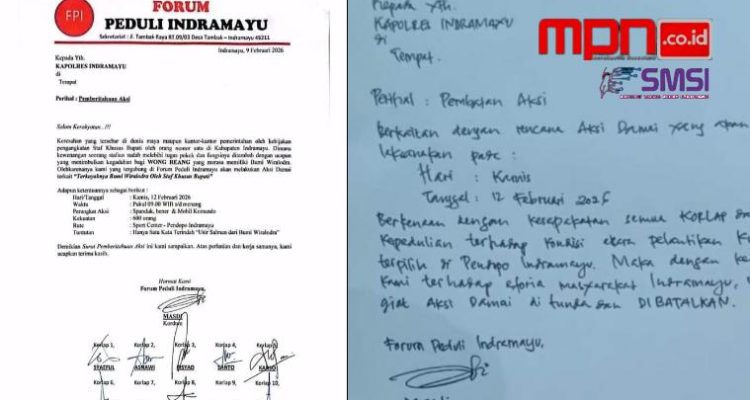 FPI
FORUM
PEDULI INDRAMAYU
Sekretariat : Jl. Tambak Raya RT.09/03 Desa Tambak – Indramayu 45211
Indramayu, 9 Februari 2026
Kepada Yth.
KAPOLRES INDRAMAYU
di
Tempat
Perihal : Pemberitahuan Aksi
Salam Kerakyatan...!!!
Keresahan yang tersebar di dunia maya maupun kantor-kantor pemerintahan oleh kebijakan
pengangkatan Staf Khusus Bupati oleh orang nomor satu di Kabupaten Indramayu. Dimana
kewenangan seorang stafsus sudah melebihi tugas pokok dan fungsinya ditambah dengan ucapan
yang menimbulkan kegaduhan bagi WONG REANG yang merasa memiliki Bumi Wiralodra.
Olehkarenanya kami yang tergabung di Forum Peduli Indramayu akan melakukan Aksi Damai
terkait
Adapun keterangannya sebagai berikut :
Hari/Tanggal : Kamis, 12 Februari 2026
Waktu : Pukul 09.00 WIB s/d
Perangkat Aksi : Spanduk, bener & Mobil Komando
Kekuatan : 600 orang
Rute : Sport Center - Pendopo Indramayu
Tuntutan : Hanya Satu Kata Terindah "Usir Salman dari Bumi Wiralodra"
Demikian Surat Pemberitahuan Aksi ini kami sampaikan. Atas perhatian dan kerja samanya, kami
ucapkan terima kasih.
Hormat Kami
Forum Peduli Indramayu,
MASDI
Kordum
Korlap 1, Korlap 2, Korlap 3, Korlap 4, Korlap 5,
SYAEFUL ASMAWI RISYAD SANTO
Korlap 6, Korlap 7, Korlap 8, Korlap 9, Korlap 10,
Kepada Yth.
KAPOLRES INDRAMAYU
di
Tempat.
mpn.co.id
SMSI
Perihal : Pembatalan Aksi
Berkaitan dengan rencana Aksi Damai yang akan
laksanakan pada :
Hari : Kamis
Tanggal : 12 Februari 2026
Berkenaan dengan kesepakatan semua KORLAP
Kepedulian terhadap kondisi acara pelantikan
terpilih di Pendopo Indramayu. Maka dengan
kami terhadap eforia masyarakat Indramayu,
giat Aksi Damai di tunda dan DIBATALKAN.
Forum Peduli Indramayu,